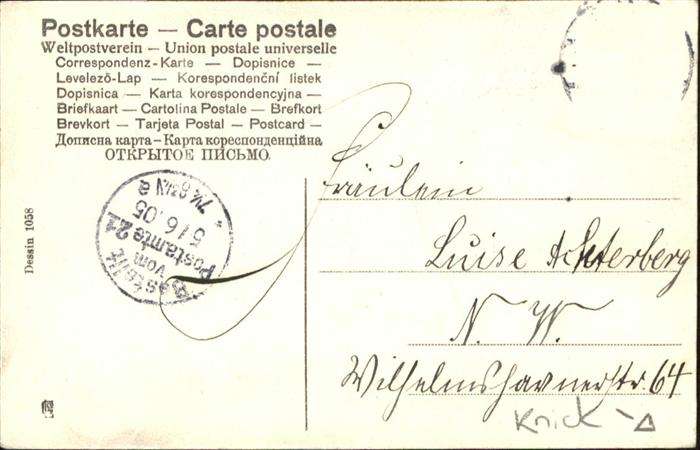 Postkarte — Carte postale
Weltpostverein — Union postale universelle
Correspondenz-Karte — Dopisnice —
Levelező-Lap — Korespondenční lístek
Dopisnica — Karta korespondencyjna —
Briefkaart — Cartolina Postale — Brefkort
Brevkort — Tarjeta Postal — Postcard —
Дописна карта — Карта кореспонденційна
ОТКРЫТОЕ ПИСЬМО.
Dessin 1058
Bestellt
vom
Postamte 21
5/6.05
7¼-8¼N
Fräulein
Luise Achterberg
N. W.
Wilhelmshavnerstr. 64
Knick